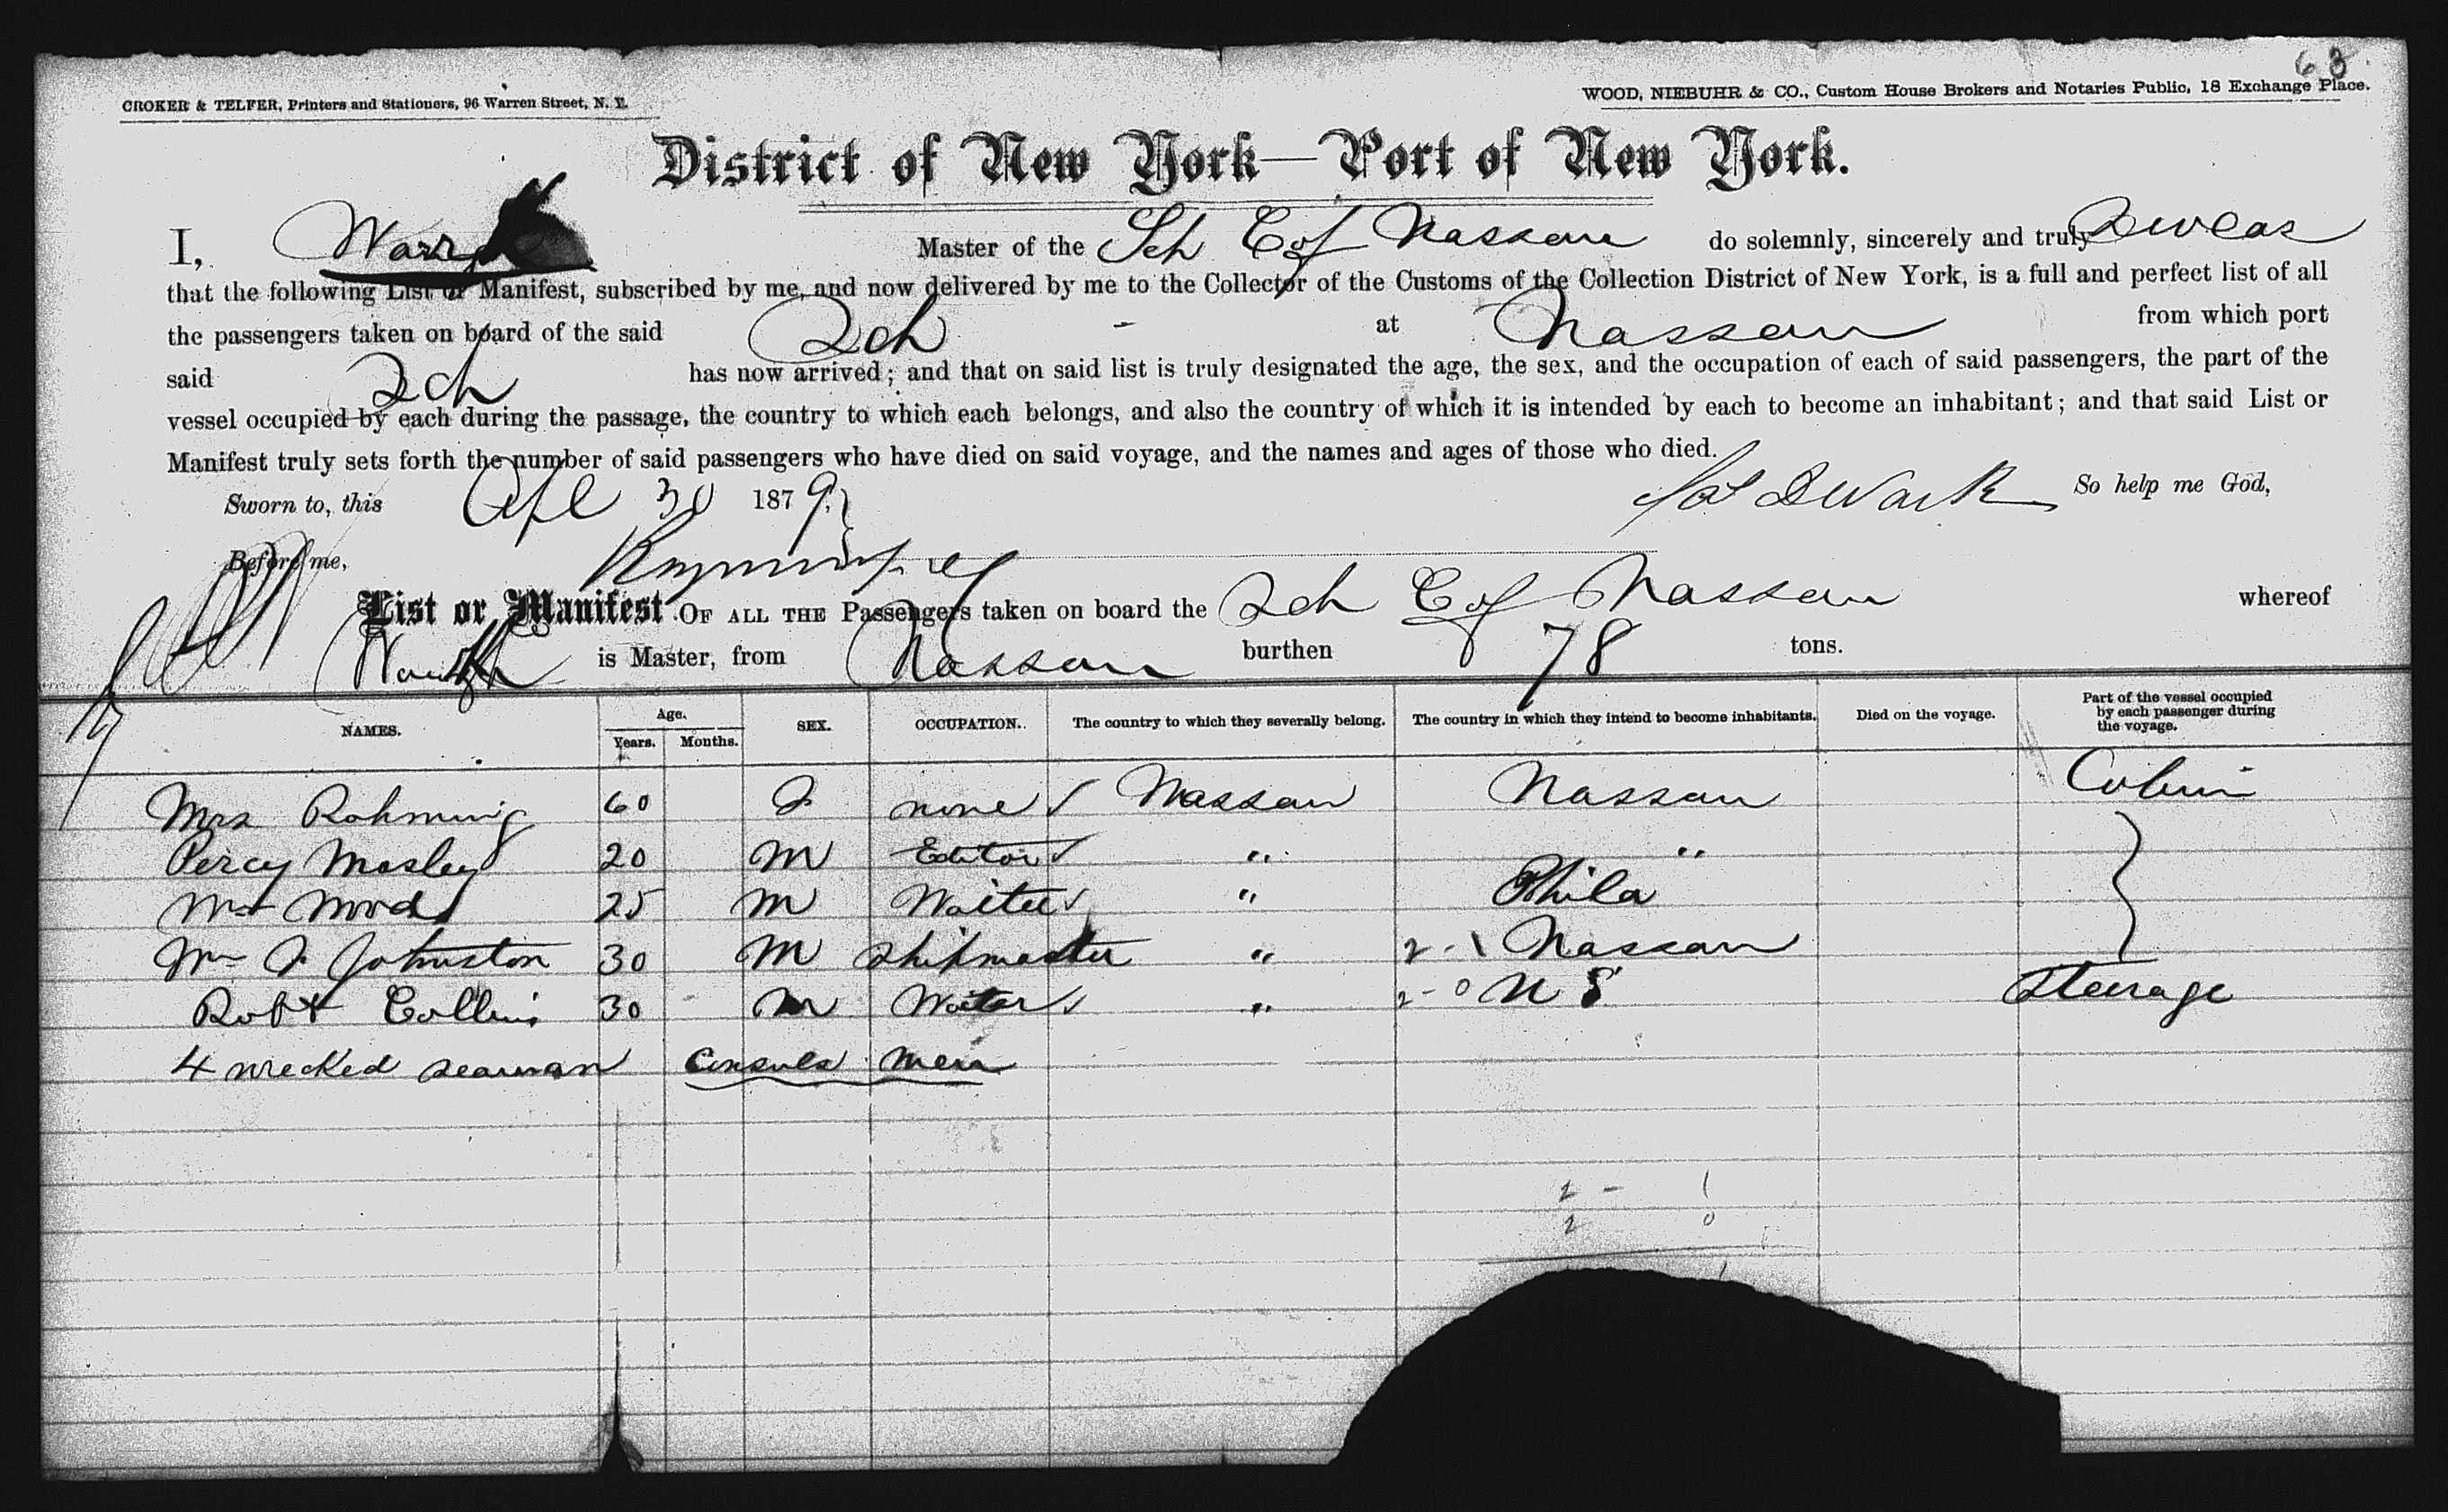 63.
CROKER & TELFER, Printers and Stationers, 96 Warren Street, N. Y.
WOOD, NIEBUHR & CO., Custom House Brokers and Notaries Public, 18 Exchange Place.
District of New York—Port of New York.
I, Master of the Sch C of Nassau do solemnly, sincerely and truly Swear
that the following List or Manifest, subscribed by me, and now delivered by me to the Collector of the Customs of the Collection District of New York, is a full and perfect list of all
the passengers taken on board of the said Sch - at Nassau from which port
said Sch has now arrived; and that on said list is truly designated the age, the sex, and the occupation of each of said passengers, the part of the
vessel occupied by each during the passage, the country to which each belongs, and also the country of which it is intended by each to become an inhabitant; and that said List or
Manifest truly sets forth the number of said passengers who have died on said voyage, and the names and ages of those who died.
Sworn to, this Apl 30 1879, So help me God,
Before me,
List or Manifest OF ALL THE Passengers taken on board the Sch C of Nassau whereof
is Master, from Nassau burthen 78 tons.
NAMES. Age. Years. Months. SEX. OCCUPATION. The country to which they severally belong. The country in which they intend to become inhabitants. Died on the voyage. Part of the vessel occupied by each passenger during the voyage.
Mrs Rahming 60 F none ✓ Nassau Nassau Cabin
Percy Mosley 20 M Editor ✓ " "
Wm 25 M Waiter ✓ " Phila
Wm J Johnston 30 M Shipmaster " 2-1 Nassau
Robt Collins 30 M Waiter ✓ " 2-0 N S Steerage
4 wrecked seaman Consuls Men
2 - 1
2 0